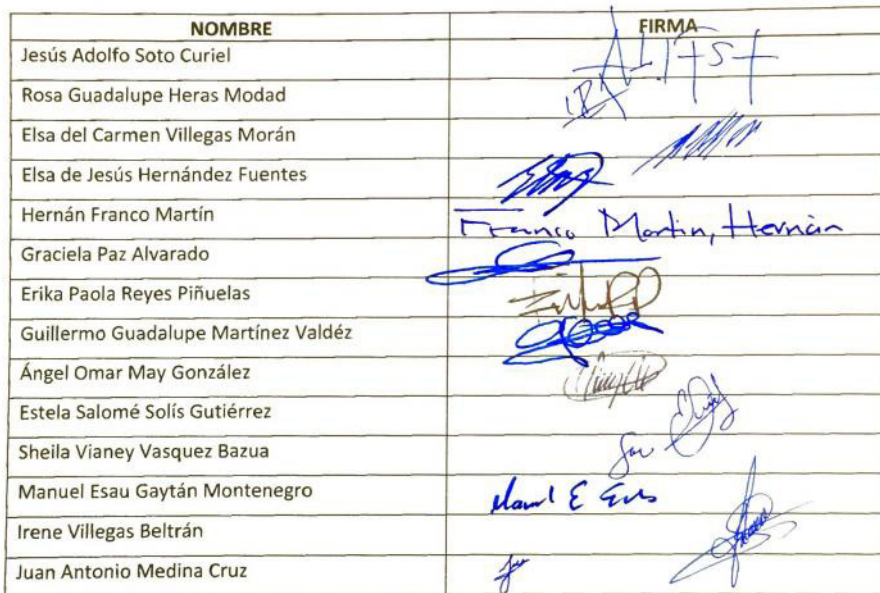 NOMBRE FIRMA
Jesús Adolfo Soto Curiel
Rosa Guadalupe Heras Modad
Elsa del Carmen Villegas Morán
Elsa de Jesús Hernández Fuentes
Hernán Franco Martín Franco Martin, Hernán
Graciela Paz Alvarado
Erika Paola Reyes Piñuelas
Guillermo Guadalupe Martínez Valdéz
Ángel Omar May González
Estela Salomé Solís Gutiérrez
Sheila Vianey Vasquez Bazua
Manuel Esau Gaytán Montenegro
Irene Villegas Beltrán
Juan Antonio Medina Cruz